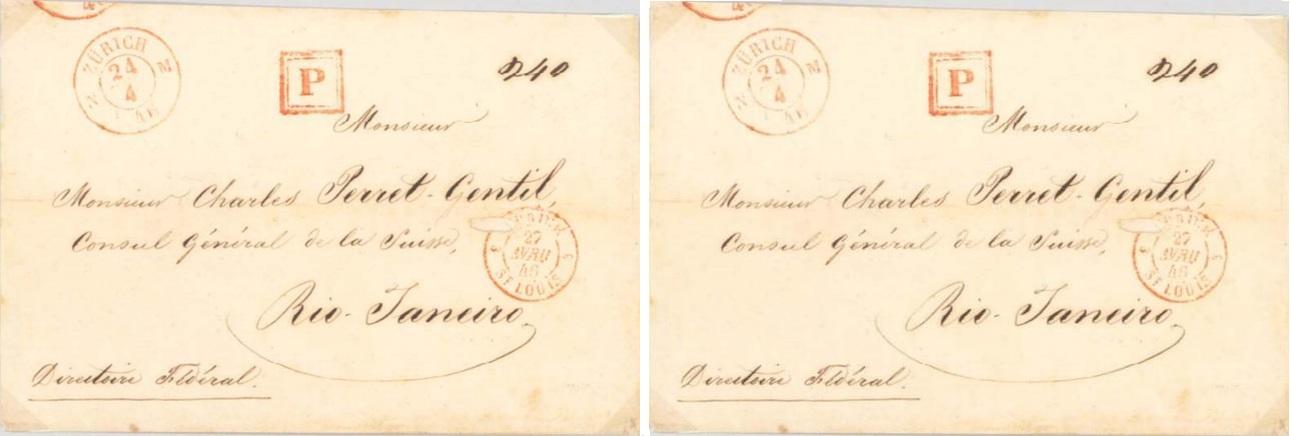 ZÜRICH
24
4
46
N
P
240
Monsieur
Monsieur Charles Perret-Gentil,
Consul Général de la Suisse,
27
AVRIL
46
ST LOUIS
Rio-Janeiro
Directoire Fédéral.
ZÜRICH
24
4
46
N
P
240
Monsieur
Monsieur Charles Perret-Gentil,
Consul Général de la Suisse,
27
AVRIL
46
ST LOUIS
Rio-Janeiro
Directoire Fédéral.